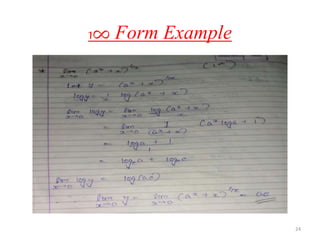 1∞ Form Example
* lim x→0 (aˣ + x)^1/x (1^∞)
Let y = (aˣ + x)^1/x
logy = 1/x log(aˣ + x)
lim x→0 logy = lim x→0 log(aˣ + x) / x
= lim x→0 1/(aˣ + x) (aˣ loga + 1)
= loga + 1 / 1
= loga + loge
lim x→0 logy = log(ae)
lim x→0 y = lim x→0 (aˣ + x)^1/x = ae
24